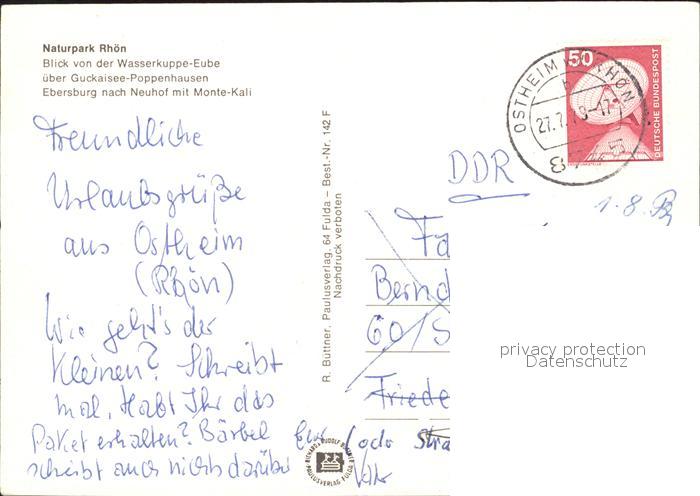 Naturpark Rhön
Blick von der Wasserkuppe-Eube
über Guckaisee-Poppenhausen
Ebersburg nach Neuhof mit Monte-Kali
Freundliche
Urlaubsgrüße
aus Ostheim
(Rhön)
Wie geht's der
Kleinen? Schreibt
mal, Habt Ihr das
Paket erhalten? Bärbel
schreibt auch nichts darüber
Eure
R. Büttner, Paulusverlag, 64 Fulda – Best.-Nr. 142 F
Nachdruck verboten
50
DEUTSCHE BUNDESPOST
OSTHEIM RHÖN
DDR
1.8.
Fa
Bernd
60/S
Friede
Stra
PAULUSVERLAG FULDA
privacy protection
Datenschutz